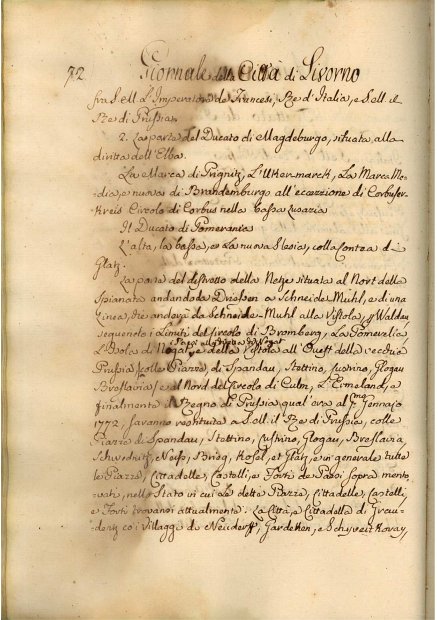 72 Giornale della Città di Livorno
fra S. e ll. L'Imperatore de Francesi, Re d'Italia, e S. e ll. il
Re di Prussia.
2. La parte del Ducato di Magdeburgo, situata alla
diritta dell'Elba.
La Marca di Prignitz, L'Ukermarck, La Marca Me-
dia, e nuova di Brandemburgo all'eccezione di Corbuser-
kreis Circolo di Corbus nella bassa Lusazia
Il Ducato di Pomerania
L'alta, la bassa, e la nuova Slesia, colla Contea di
Glatz.
La parte del distretto della Netze situata al Nort della
Spianata andando da Driesen a Schneide Muhl, e di una
linea, che anderà da Schneide-Muhl alla Vistola, p Waldau
seguendo i Limiti del Circolo di Bromberg, La Pomerelia
L'Isola di Nogat, e della Vistola all'Ouest della vecchia
i Paesi alla dritta del Nogat
Prussia colle Piazze, di Spandau, Stettino, Custrino, Glogau
Breslavia / e al Nord del Circolo di Culm, L'Ermeland, e
finalmente il Regno di Prussia qual'era al pmo Gennajo
1772, saranno restituite a S. e ll. il Re di Prussia, colle
Piazze di Spandau, Stettino, Custrino, Glogau, Breslavia,
Schwednitz, Neiss, Brieg, Kosel, et Glatz, e in generale tutte
le Piazze, Cittadelle, Castelli, e Forti dei Paesi sopra mento-
vati, nello Stato in cui le dette Piazze, Cittadelle, Castelli,
e Forti trovansi attualmente. La Città, e Cittadella di Grau-
dentz co i Villaggi di Neudorff, Gardeken, e Schwetkoray,